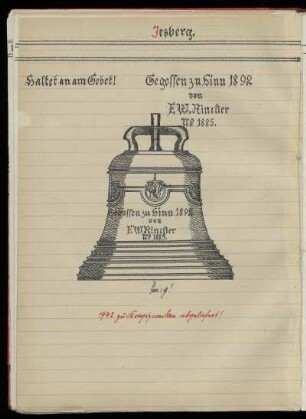 Jesberg.
Haltet an am Gebet!
Gegossen zu Sinn 1892
von
F.W. Rincker
No 1885.
Gegossen zu Sinn 1892
von
F.W. Rincker
No 1885.
1942 zu Kriegszwecken abgeliefert!